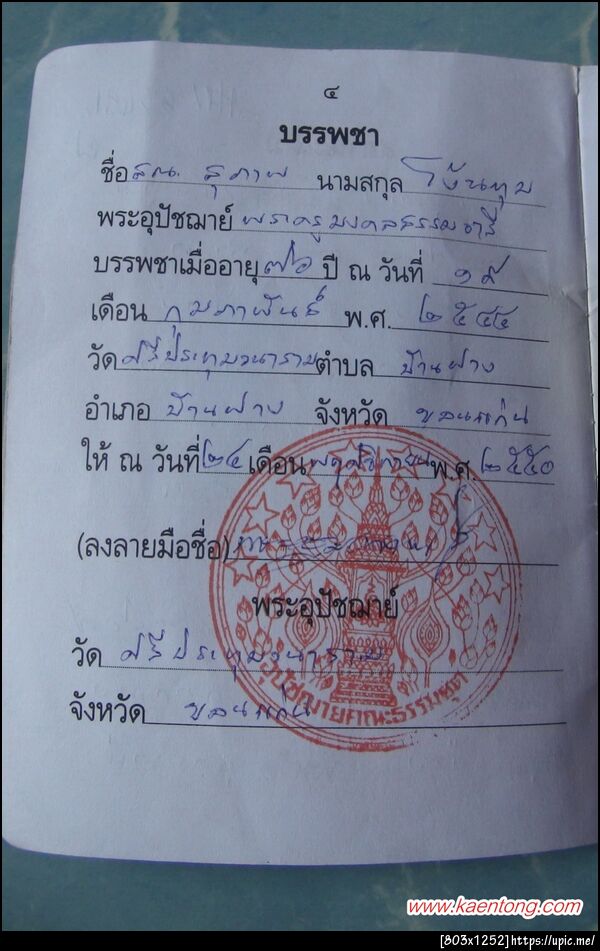 ๔
บรรพชา
ชื่อ สณ. สุภาพ นามสกุล
พระอุปัชฌาย์ พระครูมงคลธรรม
บรรพชาเมื่ออายุ ๗๖ ปี ณ วันที่ ๑๙
เดือน กุมภาพันธ์ พ.ศ. ๒๕๔๔
วัด ศรีประทุมวนาราม ตำบล บ้านฝาง
อำเภอ บ้านฝาง จังหวัด ขอนแก่น
ให้ ณ วันที่ ๒๔ เดือน พฤศจิกายน พ.ศ. ๒๕๕๐
(ลงลายมือชื่อ)
พระอุปัชฌาย์
วัด ศรีประทุมวนาราม
จังหวัด ขอนแก่น
อุปัชฌาย์คณะธรรมยุต
www.kaentong.com
[803x1252]https://upic.me/